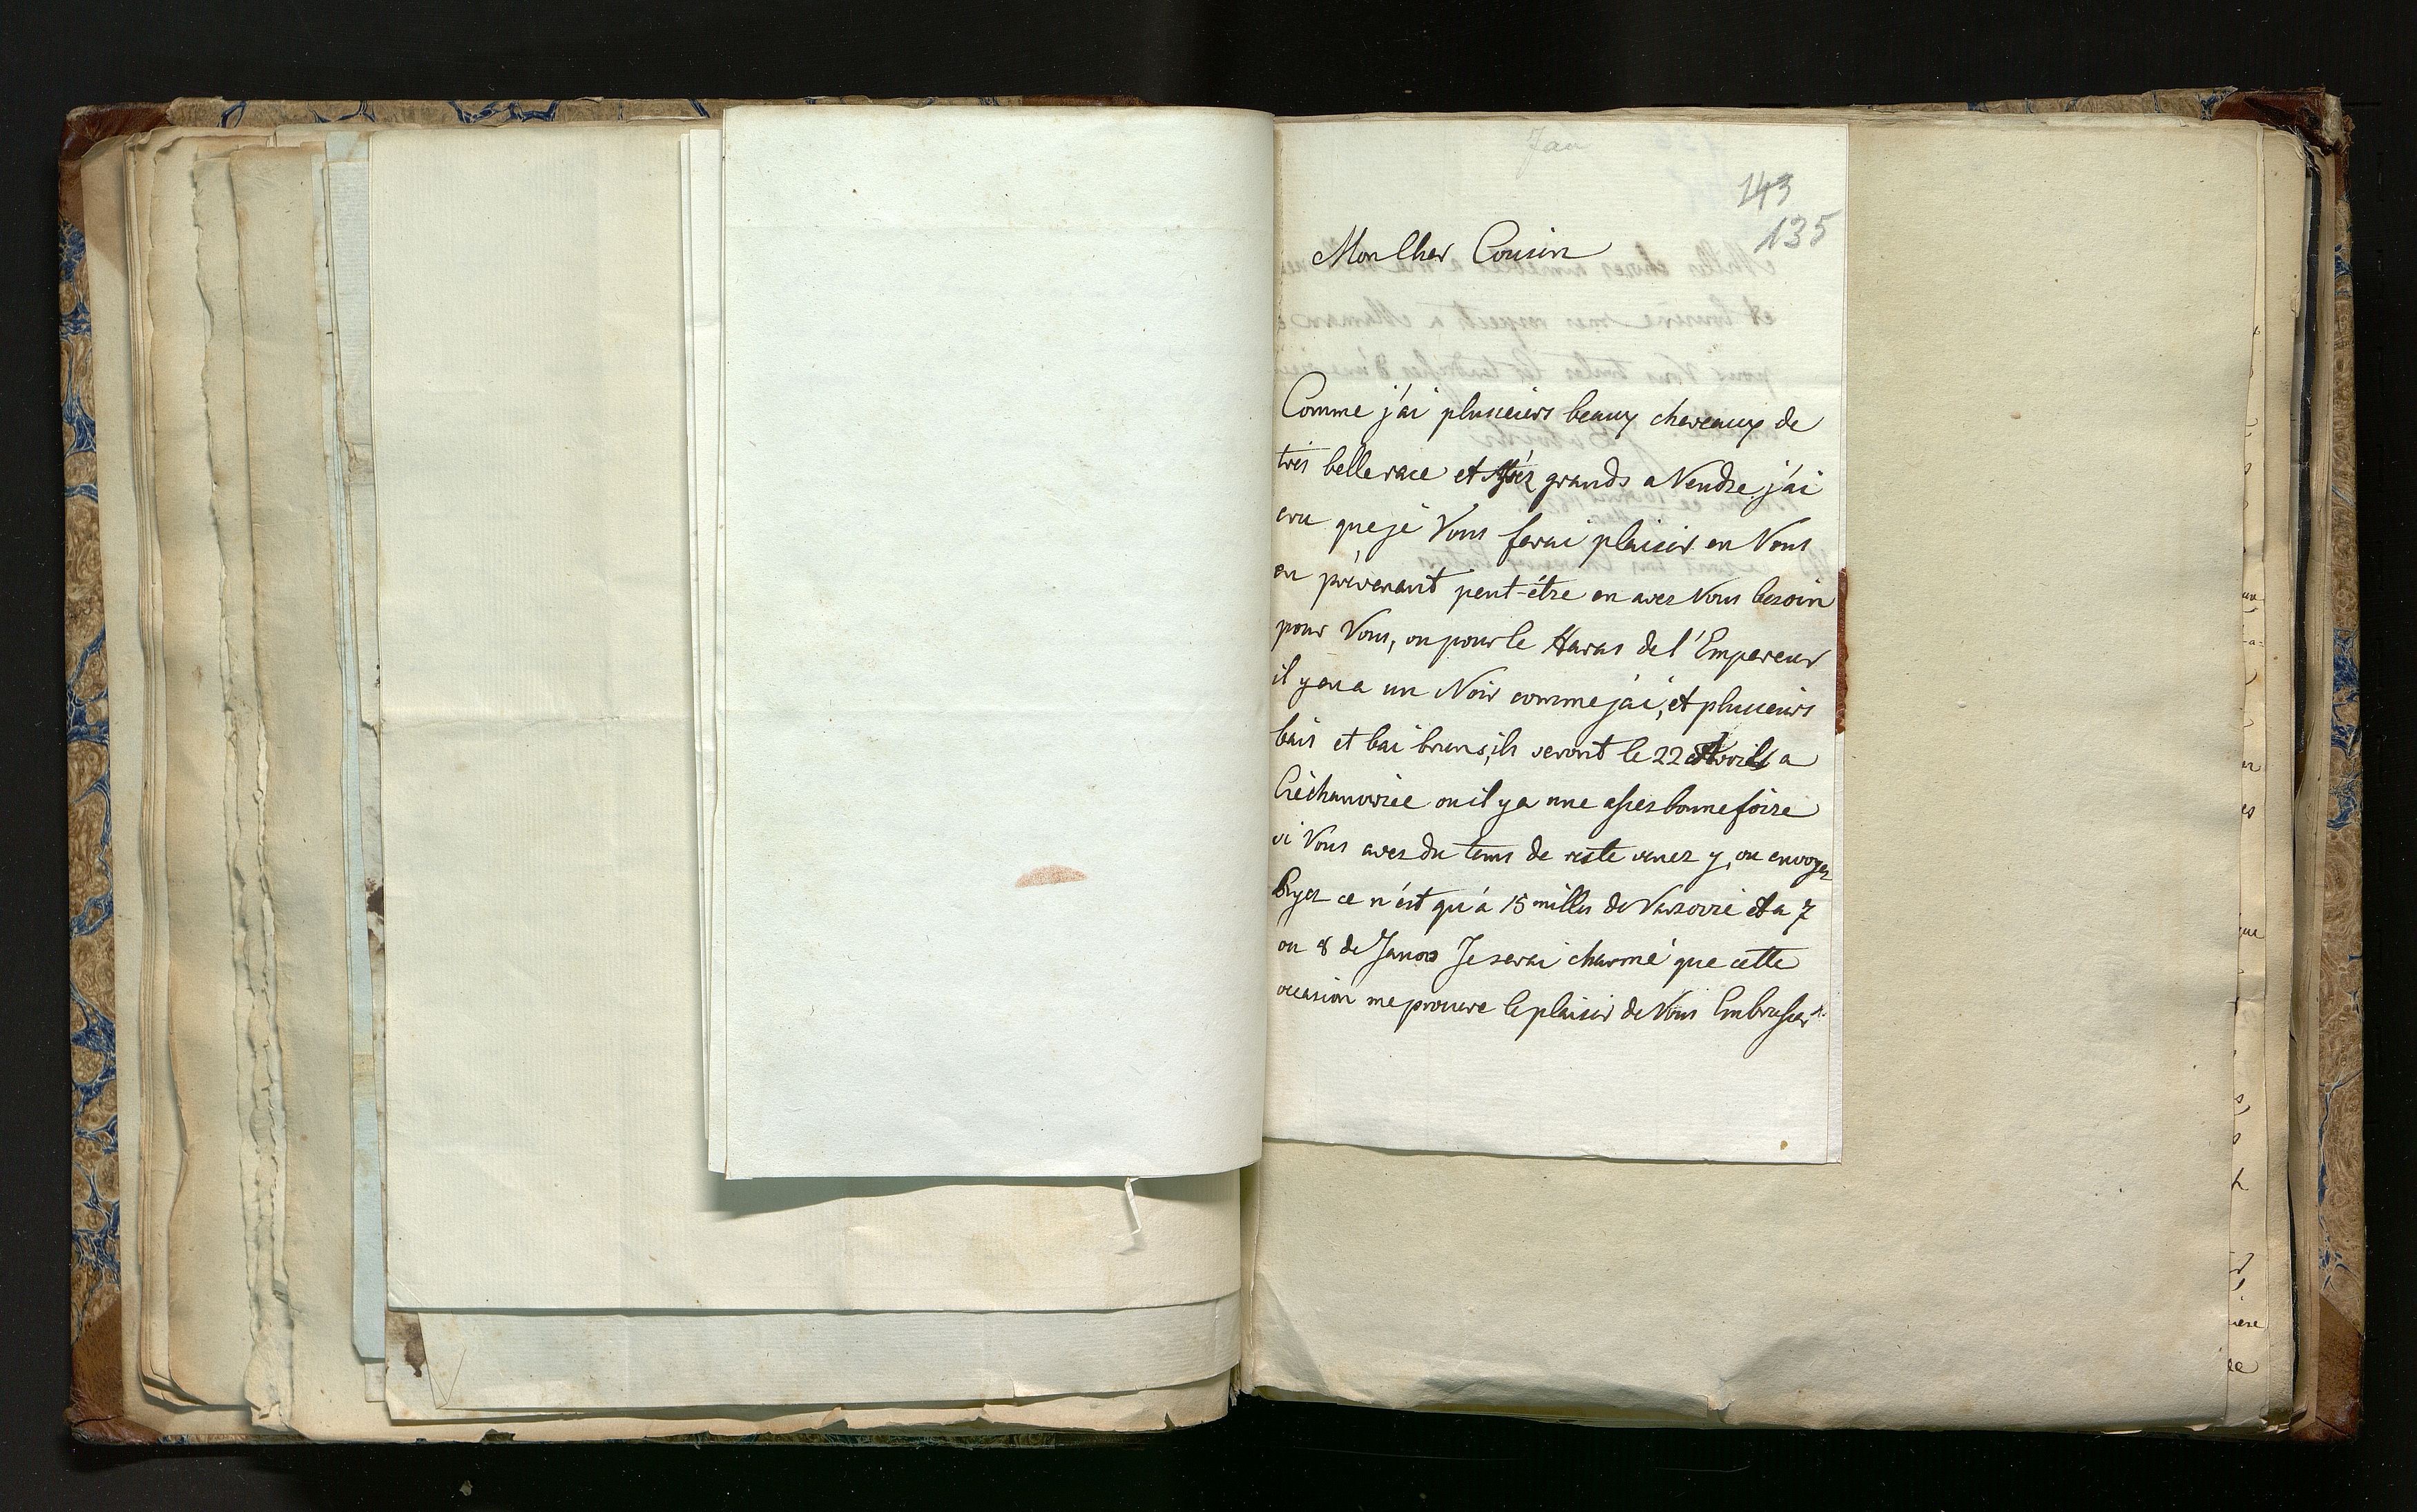 Jan
143
135
Mon Cher Cousin
Comme j'ai plusieurs beaux cheveaux de
très belle race et très grands a Vendre j'ai
cru que je Vous ferai plaisir en Vous
en prévenant peut-être en avez Vous besoin
pour Vous, ou pour le Haras de l'Empereur
il y en a un Noir comme j'ai, et plusieurs
bais et bai bruns, ils seront le 22 Avril a
Ciéchanowiec ou il y a une assez bonne foire
si Vous avez du tems de reste venez y, ou envoyez
ce n'est qu'à 15 milles de Varsovie et a 7
ou 8 de Janow Je serai charmé que cette
occasion me procure le plaisir de Vous Embrasser